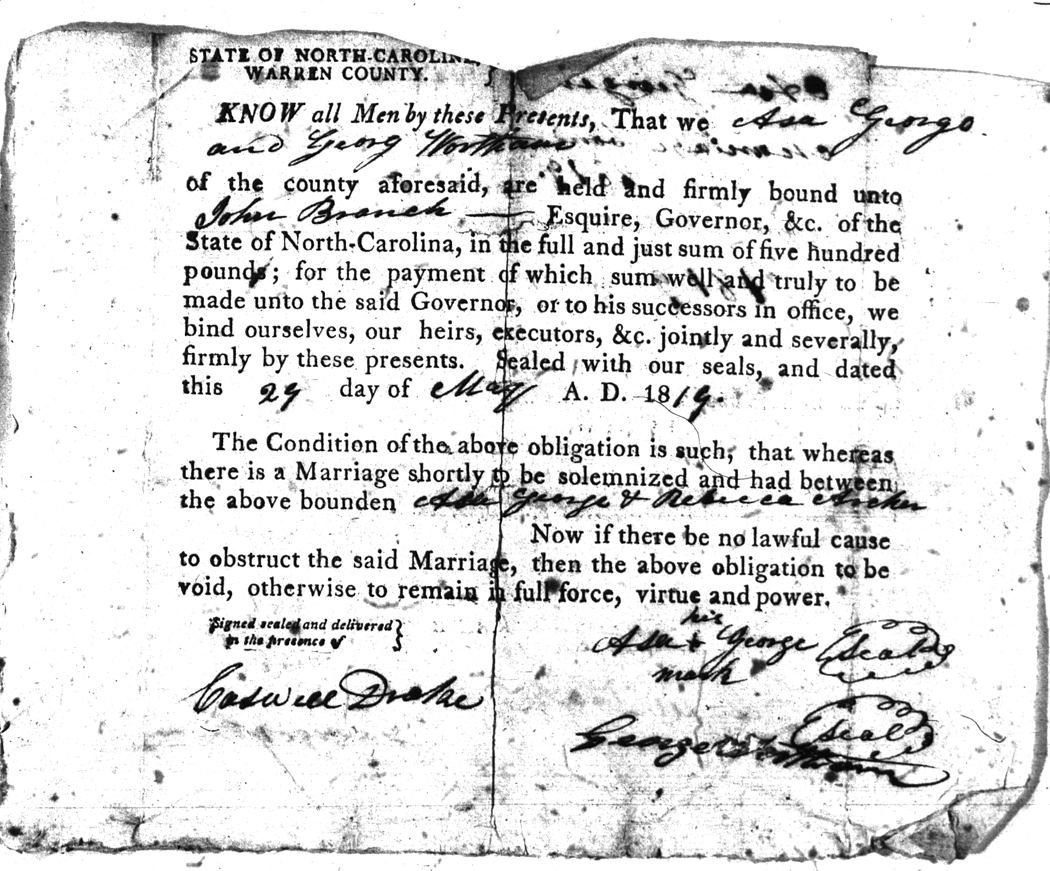 STATE OF NORTH-CAROLINA,
WARREN COUNTY. }
KNOW all Men by these Presents, That we Asa George
and Georg Wortham
of the county aforesaid, are held and firmly bound unto
John Branch Esquire, Governor, &c. of the
State of North-Carolina, in the full and just sum of five hundred
pounds; for the payment of which sum well and truly to be
made unto the said Governor, or to his successors in office, we
bind ourselves, our heirs, executors, &c. jointly and severally,
firmly by these presents. Sealed with our seals, and dated
this 29 day of May A. D. 1819.
The Condition of the above obligation is such, that whereas
there is a Marriage shortly to be solemnized and had between
the above bounden Asa George & Rebecca Archer
Now if there be no lawful cause
to obstruct the said Marriage, then the above obligation to be
void, otherwise to remain in full force, virtue and power.
Signed sealed and delivered }
in the presence of
his
Asa x George (Seal)
mark
Caswell Drake
(Seal)
George Wortham